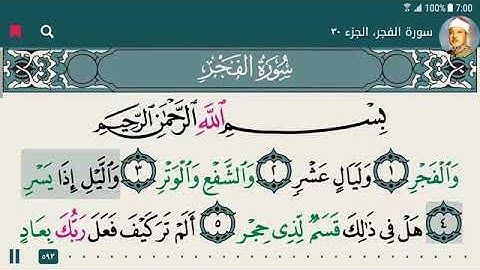 100% 7:00
سورة الفجر، الجزء ٣٠
سُورَةُ الْفَجْرِ
بِسْمِ اللَّهِ الرَّحْمَٰنِ الرَّحِيمِ
وَالْفَجْرِ ١ وَلَيَالٍ عَشْرٍ ٢ وَالشَّفْعِ وَالْوَتْرِ ٣ وَالَّيْلِ إِذَا يَسْرِ
٤ هَلْ فِي ذَٰلِكَ قَسَمٌ لِّذِي حِجْرٍ ٥ أَلَمْ تَرَ كَيْفَ فَعَلَ رَبُّكَ بِعَادٍ
٥٩٣